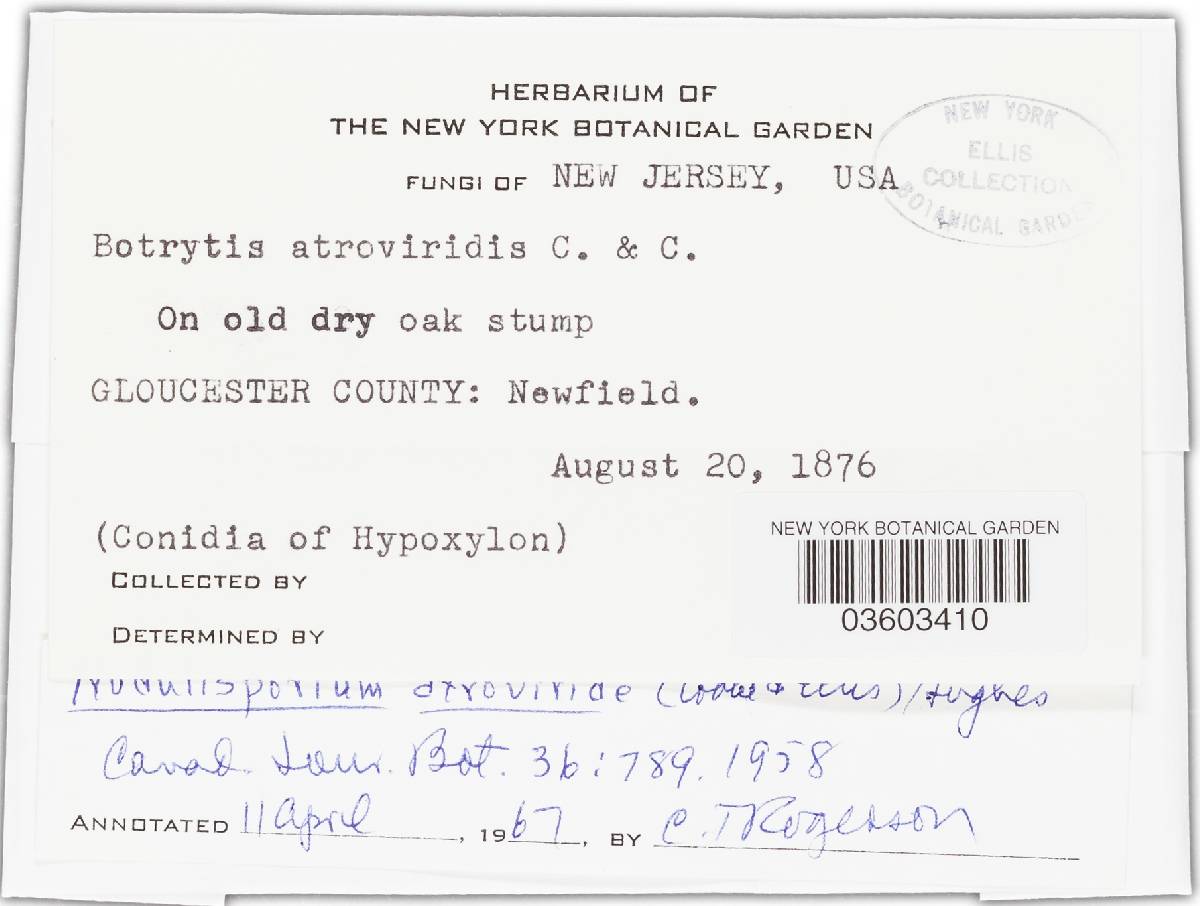 HERBARIUM OF
THE NEW YORK BOTANICAL GARDEN
FUNGI OF NEW JERSEY, USA
NEW YORK
ELLIS
COLLECTION
BOTANICAL GARDEN
Botrytis atroviridis C. & C.
On old dry oak stump
GLOUCESTER COUNTY: Newfield.
August 20, 1876
(Conidia of Hypoxylon)
NEW YORK BOTANICAL GARDEN
03603410
COLLECTED BY
DETERMINED BY
Nodulisporium atroviride (Cooke & Ellis) Hughes
Canad. Jour. Bot. 36:789. 1958
ANNOTATED 11 April, 1967, BY C. T Rogerson